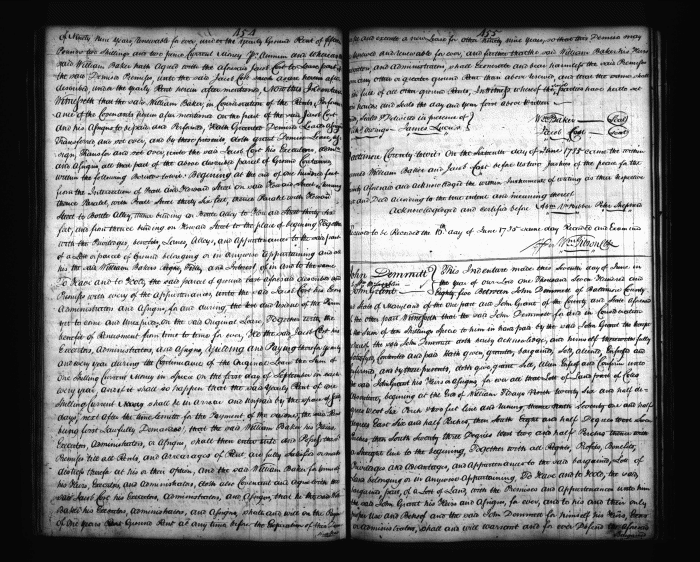 454
of Ninety Nine Years, Renewable for ever, under the Yearly Ground Rent of fifteen
Pounds two Shillings and two pence Current Money Per Annum and Whereas
said William Baker hath Agreed with the aforesaid Jacob Cost to Lease part of
the said Demised Premises, unto the said Jacob Cost herein after
described, under the Yearly Rent herein after mentioned, Now this Indenture
Witnesseth that the said William Baker, in Consideration of the Rents
and of the Covenants herein after mentioned on the part of the said Jacob Cost
and his Assigns to be paid and Performed, Hath Granted Demised Leased Assigned
Transferred and set over, and by these presents, doth grant Demise Lease
Transfer and set over, unto the said Jacob Cost his Executors,
and Assigns all that part of the above described parcel of Ground Contained
within the following Bounds to wit: Beginning at the end of one hundred feet
from the Intersection of Pratt and Howard Street on said Howard Street and running
thence Parallel with Pratt Street thirty six feet, thence Parallel with Howard
Street to Bottle Alley, thence binding on Bottle Alley to Howard Street thirty six
feet, and from thence binding on Howard Street to the place of beginning Together
with the Privileges, benefits, Lanes, Alleys, and Appurtenances to the said part
of a Lot or parcel of Ground belonging or in Anywise Appertaining and all
his the said William Bakers Right, Title, and Interest of in and to the same
To Have and to Hold, the said parcel of ground last aforesaid described and
Premises with every of the Appurtenances unto the said Jacob Cost his Executors
Administrators and Assigns, for and during the of the Term
yet to come and Unexpired, on the said Original Lease, Together with the
benefit of Renewment from time to time for ever, He the said Jacob Cost his
Executors, Administrators, and Assigns, Yielding and Paying therefor Yearly
and every year during the Continuance of the Original Lease the Sum of
One Shilling Current Money in Specie on the first day of September in each and
every year, and if it shall so happen that the said Yearly Rent of one
Shilling Current Money shall be in Arrear and Unpaid by the space of
days, next after the time limited for the Payment of the same, the said Rent
being first Lawfully Demanded, that the said William Baker his Heirs,
Executors, Administrators, or Assigns, shall then enter into and Repossess
Premises till all Rents, and Arrearages of Rent are fully Satisfied or make
distress therefor at his or their option, And the said William Baker for himself
his Heirs, Executors, and Administrators, doth also Covenant and agree with the
said Jacob Cost his Executors, Administrators, and Assigns, that he the said William
Baker his Executors, Administrators, and Assigns, shall and will on the Payment
of One Years Rent Ground Rent at any time before the Expiration of this Demise
455
make and execute a new Lease for other Ninety Nine years, so that this Demise may
renewed and renewable for ever, and further that the said William Baker his Heirs
Executors, and Administrators, shall Exonerate and bear harmless the said Premises
from any other or greater ground Rent than above Reserved, and that the same shall
be in full of all other ground Rents, In Witness whereof the Parties have hereto set
their hands and Seals the day and Year first above Written
Signed Sealed & Delivered in presence of
James Lucas
Wm Baker (Seal)
Jacob Cost (Seal)
Baltimore County towit: On the Sixteenth day of June 1785 came the within
named William Baker and Jacob Cost before us two Justices of the peace for the
County aforesaid and acknowledged the within Instrument of writing as their respective
act and Deed According to the true intent and meaning thereof
Acknowledged and certified before Peter Shepherd
to be Recorded the 16th day of June 1785 same day Recorded and Examined
Per Wm Gibson Clk
John Demmitt
John Grant
This Indenture made this Seventh day of June in
the Year of our Lord One Thousand Seven Hundred and
Eighty five Between John Demmitt of Baltimore County
and State of Maryland of the one part and John Grant of the County and State aforesaid
of the other part Witnesseth that the said John Demmitt for and in Consideration
of the Sum of ten Shillings Specie to him in hand paid by the said John Grant the receipt
whereof the said John Demmitt doth hereby acknowledge, and himself therewith fully
satisfied, Contented and paid Hath given, granted, bargained, Sold, aliened, Enfeoffed and
Confirmed, and by these presents, doth give, grant, Sell, Alien Enfeoff and Confirm unto
the said John Grant his Heirs or Assigns for ever all that Lott of Land part of
beginning at the End of William Tidays North twenty six and half de-
grees West Six Perch Wood feet line and running thence North Seventy one and half
degrees East Six and half Perches, then South Eight and half Degrees West Seven
Perches then South Seventy three Degrees West two and half Perches thence with
a Straight line to the beginning, Together with all Rights, Profits, Benefits,
Privileges and Advantages, and Appurtenances to the said bargained Lott of
Land belonging or in Anywise Appertaining, To Have and to Hold, the said
bargained Lott, of Land, with the Premises and Appurtenances unto him
the said John Grant his Heirs and Assigns, for ever, and to his and their only
proper Use and Behoof and the said John Demmitt for himself his Heirs, Executors
or Administrators, shall and will Warrant and for ever Defend the aforesaid